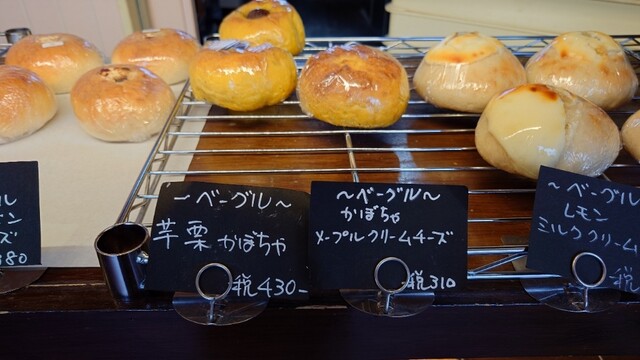 ーン
ーズ
380
〜ベーグル〜
芋栗かぼちゃ
税430-
〜ベーグル〜
かぼちゃ
メープルクリームチーズ
税310
〜ベーグル
レモン
ミルククリーム
税